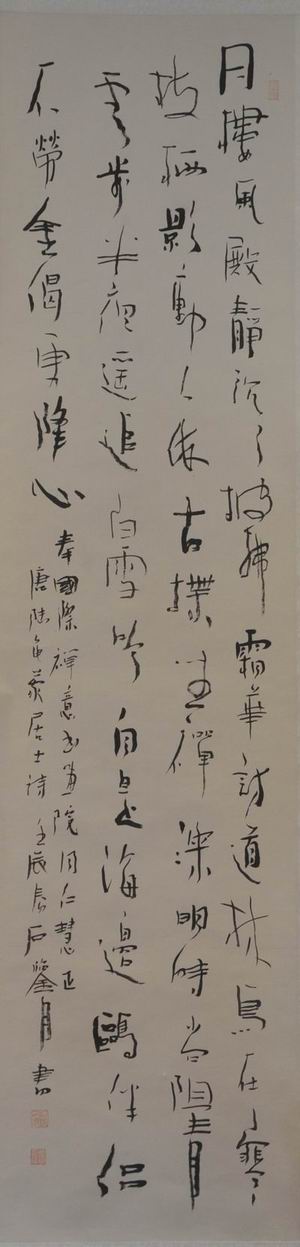 月樓風殿靜沉沉披拂霜華訪道林鳥在寒
枝栖影動人依古堞坐禪深明時尚阻青
雲步半夜遥追白雪吟自是海邊鷗伴侣
不勞金偈更降心
奉國際禪意書畫院同仁慧正
唐陸龜蒙居士詩壬辰春石鑒月書